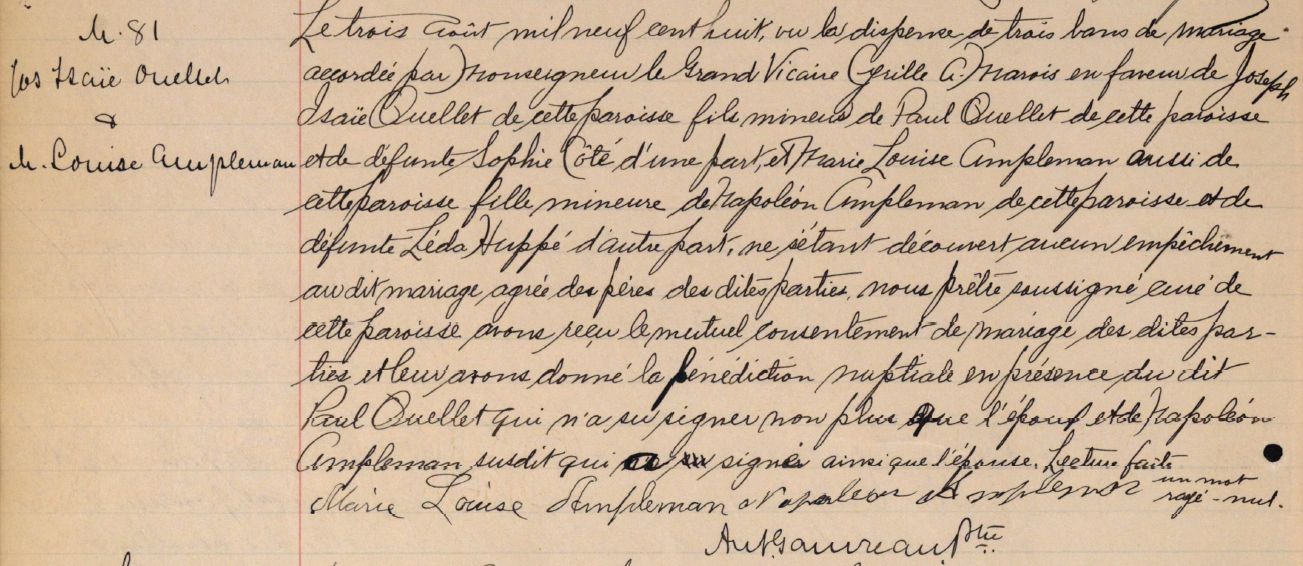 M. 81
Jos Isaïe Ouellet
&
M. Louise Ampleman
Le trois Août mil neuf cent huit, vu la dispense de trois bans de mariage
accordée par Monseigneur le Grand Vicaire Cyrille A. Marois en faveur de Joseph
Isaïe Ouellet de cette paroisse fils mineur de Paul Ouellet de cette paroisse
et de défunte Sophie Côté d'une part, et Marie Louise Ampleman aussi de
cette paroisse fille mineure de Napoléon Ampleman de cette paroisse et de
défunte Léda Huppé d'autre part, ne s'étant découvert aucun empêchement
au dit mariage agrée des pères des dites parties, nous prêtre soussigné curé de
cette paroisse avons reçu le mutuel consentement de mariage des dites par-
ties et leur avons donné la bénédiction nuptiale en présence du dit
Paul Ouellet qui n'a su signer non plus que l'époux et de Napoléon
Ampleman susdit qui a signé ainsi que l'épouse. Lecture faite
un mot
rayé - nul.
Marie Louise Ampleman Napoleon Ampleman
Ant. Gauvreau Ptre